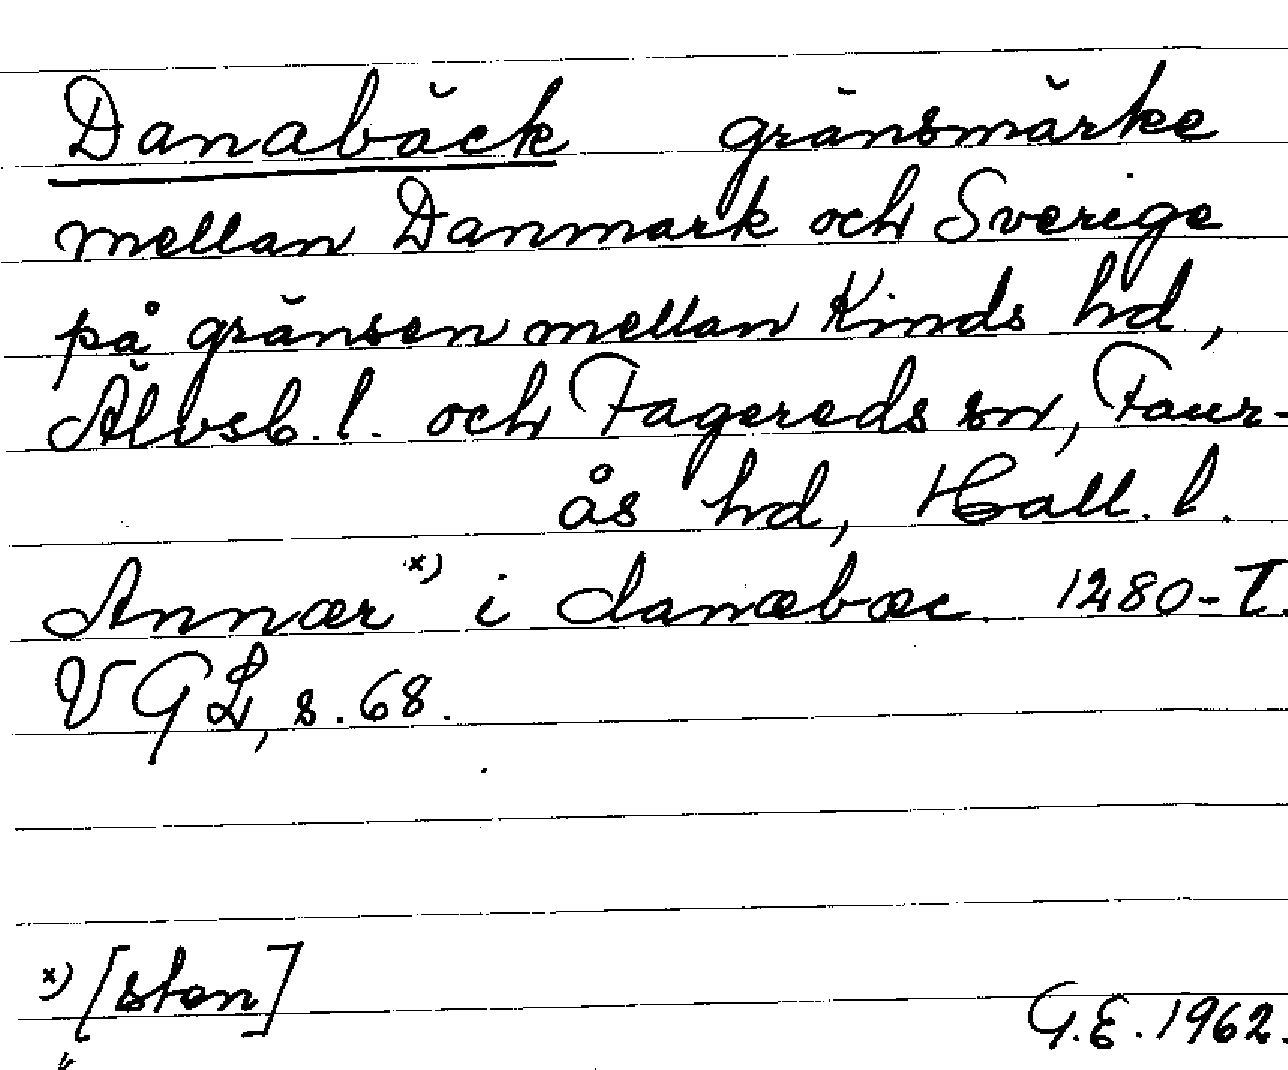 Danabäck gränsmärke
mellan Danmark och Sverige
på gränsen mellan Kinds hd,
Älvsb. l. och Fagereds sn, Faur-
ås hd, Hall. l.
Annær x) i danæbæc 1280-T.
VGL, s. 68.
x) [sten]
G.E. 1962.